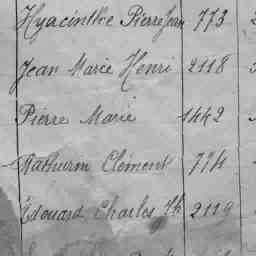 Hyacinthe Pierre Jean 773
Jean Marie Henri 2118
Pierre Marie 1442
Mathurin Clément 774
Edouard Charles 2119